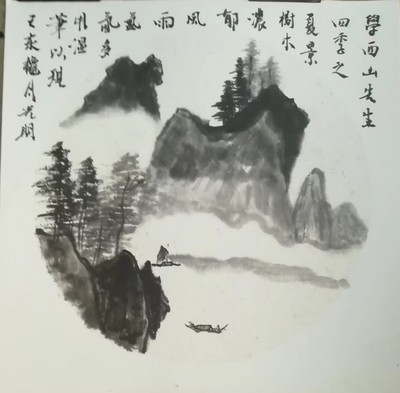 學西山先生
四季之
夏景
樹木
濃
郁
風
雨
氣多
用湿
筆以現
壬辰穐月光朋